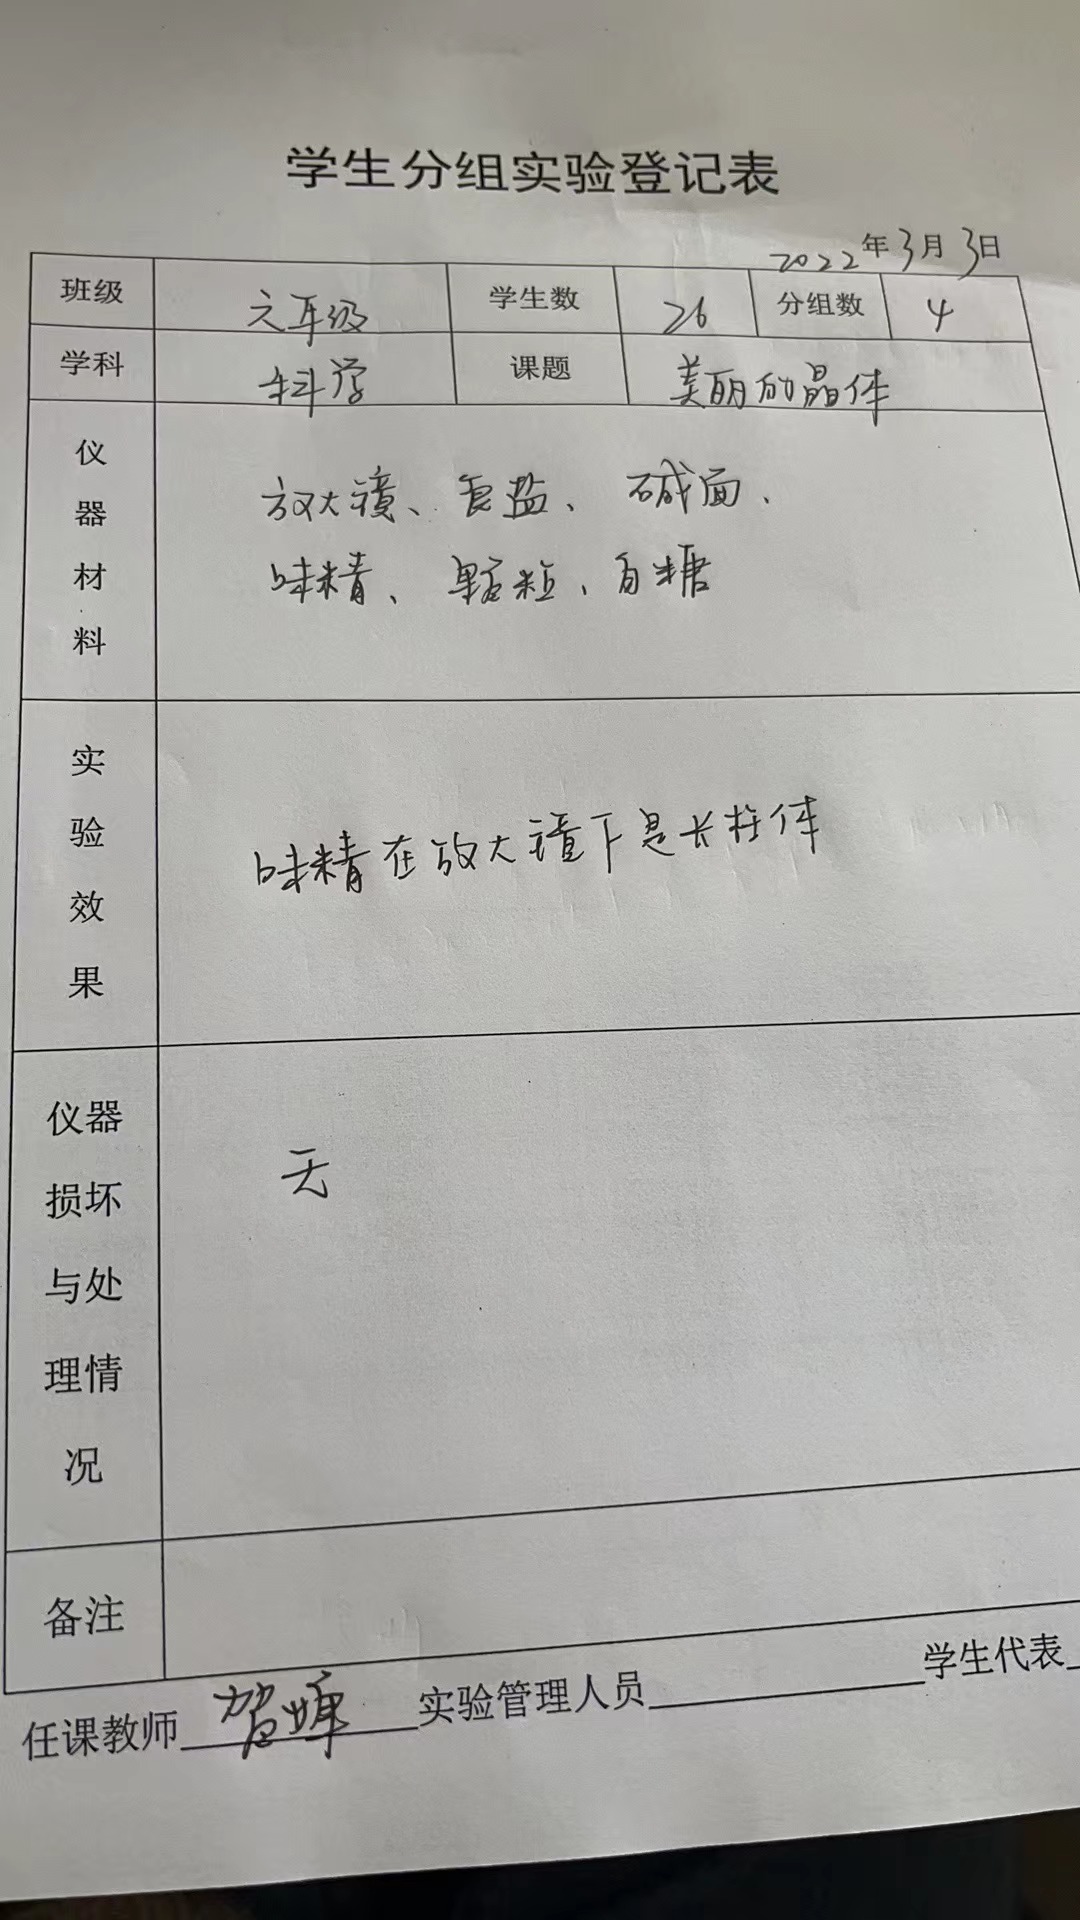 学生分组实验登记表
2022年3月3日
班级 六年级 学生数 26 分组数 4
学科 科学 课题 美丽的晶体
仪器材料 放大镜、食盐、碱面、
味精、粒、白糖
实验效果 味精在放大镜下是长柱体
仪器损坏与处理情况 无
备注
任课教师 贺 实验管理人员 学生代表